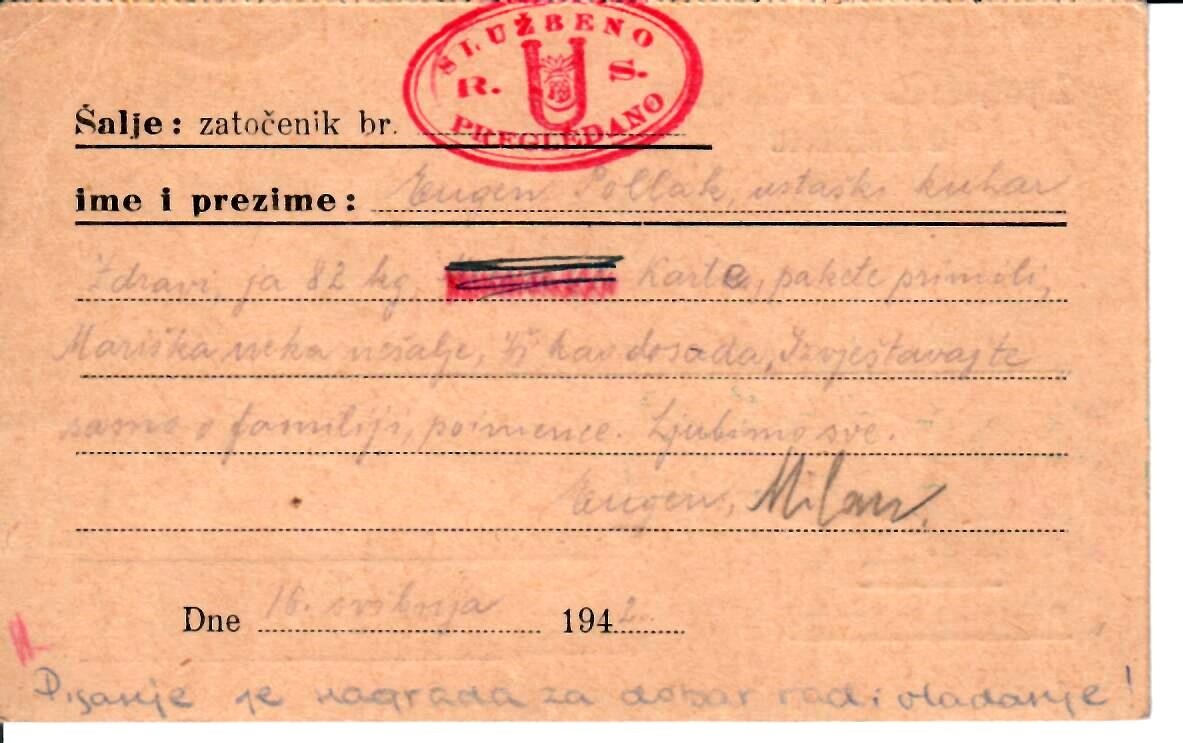 SLUŽBENO
R. U S.
PREGLEDANO
Šalje: zatočenik br.
ime i prezime: Eugen Pollak, ustaški kuhar
Zdravi, ja 82 kg, Karte, pakete primili,
Mariška neka nešalje, Vi kao dosada, Izvještavajte
samo o familiji, poimence. Ljubimo sve.
Eugen, Milan.
Dne 16. svibnja 1942.
Pisanje je nagrada za dobar rad i vladanje!